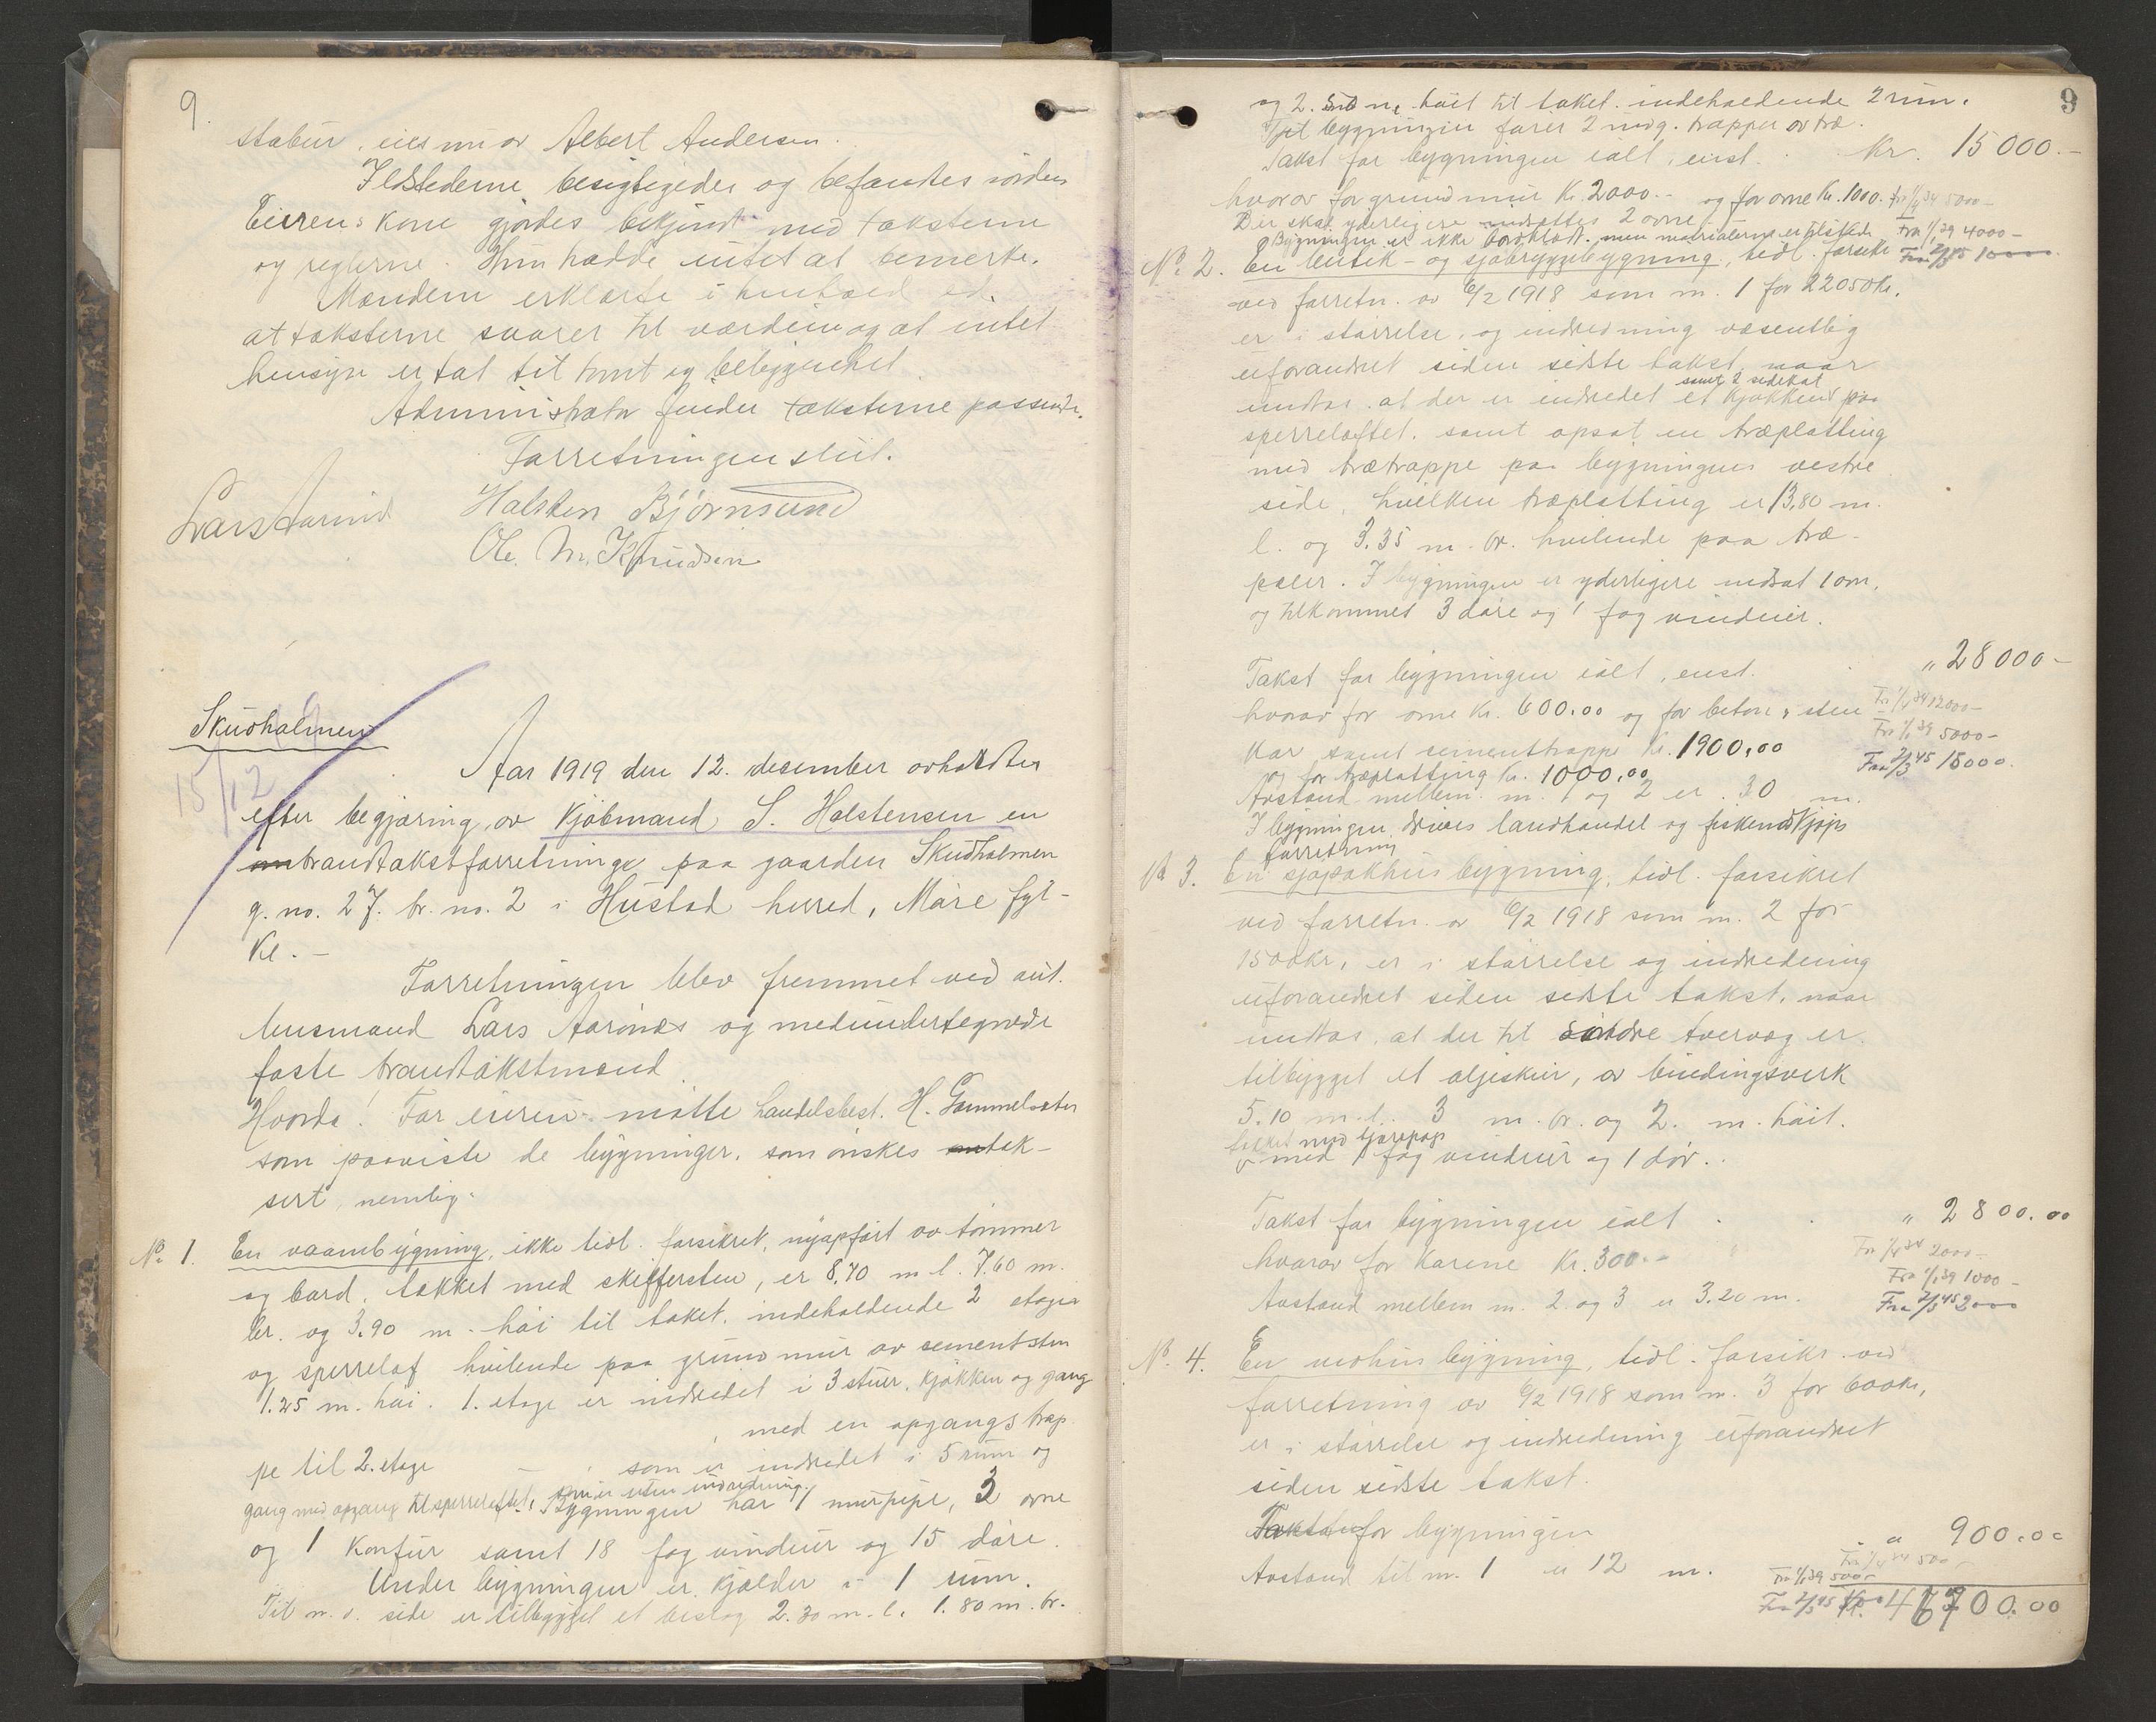 9.
stabur, eies nu av Albert Andersen.
Ildstederne besigtigedes og befandtes iorden
Eierens kone gjordes bekjendt med taksterne
og reglerne. Hun hadde intet at bemerke.
Mændene erklærte i henhold ed.
at taksterne svarer til værdien og at intet
hensyn er tat til tomt og beliggenhet.
Administrator finder taksterne passende.
Forretningen slut.
Halsten Bjørnsund
Ole. M. Knudsen
Skudholmen
15/12
Aar 1919 den 12. december avholdtes
efter begjæring av kjøbmand S. Halstensen en
brandtakstforretning paa gaarden Skudholmen
g. no. 27. br. no. 2 i Hustad herred, Møre fyl-
ke. -
Forretningen blev fremmet ved aut.
lensmand Lars Aarønes og medundertegnede
faste brandtakstmænd
Hvorda! For eieren møtte handelsbest. H. Gammelsæter
som paaviste de bygninger, som ønskes tak-
sert, nemlig:
No 1. En vaanbygning, ikke tidl. forsikret, nyopført av tømmer
og bord, tækket med skiffersten, er 8,70 m l. 7.60 m.
br. og 3.90 m. høi til taket, indeholdende 2 etager
og sperreloft hvilende paa grundmur av sementsten
1.25 m. høi. 1. etage er indredet i 3 stuer, kjøkken og gang
, med en opgangstrap-
pe til 2. etage, som er indredet i 5 rum og
gang med opgang til sperreloftet, som er uten indredning.
Bygningen har 1 murpipe, 3 ovne
og 1 komfur samt 18 fag vinduer og 15 døre.
Under bygningen er kjelder i 1 rum.
Til n. ø. side er tilbygget et bislag 2.30 m. l. 1.80 m. br.
9
og 2. m. høit til taket. indeholdende 2 rum.
Til bygningen fører 2 indg. trapper av træ.
Takst for bygningen ialt, enst. Kr. 15 000.-
hvorav for grundmur Kr. 2000.- og for ovne Kr. 1000. Fra 1/1 34 5000-
Der skal yderligere indsættes 2 ovne. Fra 1/1 39 4000-
Bygningen er ikke bordklædt, men materialerne er tilstede
No. 2. En butik- og sjøbryggebygning, tidl. forsikr Fra 2/3 45 10000.
ved forretn. av 6/2 1918 som nr. 1 for 22050kr.
er i størrelse, og indredning væsentlig
uforandret siden sidste takst, naar
undtas at der er indredet et kjøkken samt 2 sidekot paa
sperreloftet. samt opsat en træplatting
med trætrappe paa bygningens vestre
side, hvilken træplatting er 13,80 m.
l. og 3.35 m. br. hvilende paa træ-
pæler. I bygningen er yderligere indsat 1 ovn,
og tilkommet 3 døre og 1 fag vinduer.
Takst for bygningen ialt, enst. " 28 000-
hvorav for ovne Kr. 600.00 og for beton & sten Fra 1/1 34 12000-
Fra 1/1 39 5000-
kar samt sementtrappe Kr. 1900,00
Fra 2/3 45 15000.
og for træplatting Kr. 1000,00
Avstand mellem nr. 1 og 2 er 30 m.
I bygningen drives landhandel og fiskeindkjøps
forretning
No 3. En sjøpakhusbygning, tidl. forsikret
ved forretn. av 6/2 1918 som nr. 2 for
1500kr, er i størrelse og indredning
uforandret siden sidste takst, naar
undtas, at der til søndre tvervæg er
tilbygget et oljeskur, av bindingsverk
5.10 m. l. 3 m. br. og 2. m. høit.
tækket med tjærepap
med 1 fag vinduer og 1 dør.
Takst for bygningen ialt " 2 800.00
hvorav for karene Kr. 300.- Fra 1/1 34 2000-
Fra 1/1 39 1000-
Avstand mellem nr. 2 og 3 er 3.20 m. Fra 2/3 45 2000
No. 4. En vedhusbygning, tidl. forsikr. ved
forretning av 6/2 1918 som nr. 3 for 600kr,
er i størrelse og indredning uforandret
siden sidste takst.
Takst for bygningen " 900.00
Fra 1/1 34 500-
Avstand til nr. 1 er 12 m. Fra 1/1 39 500-
Fra 2/3 45 Kr. 46700.00